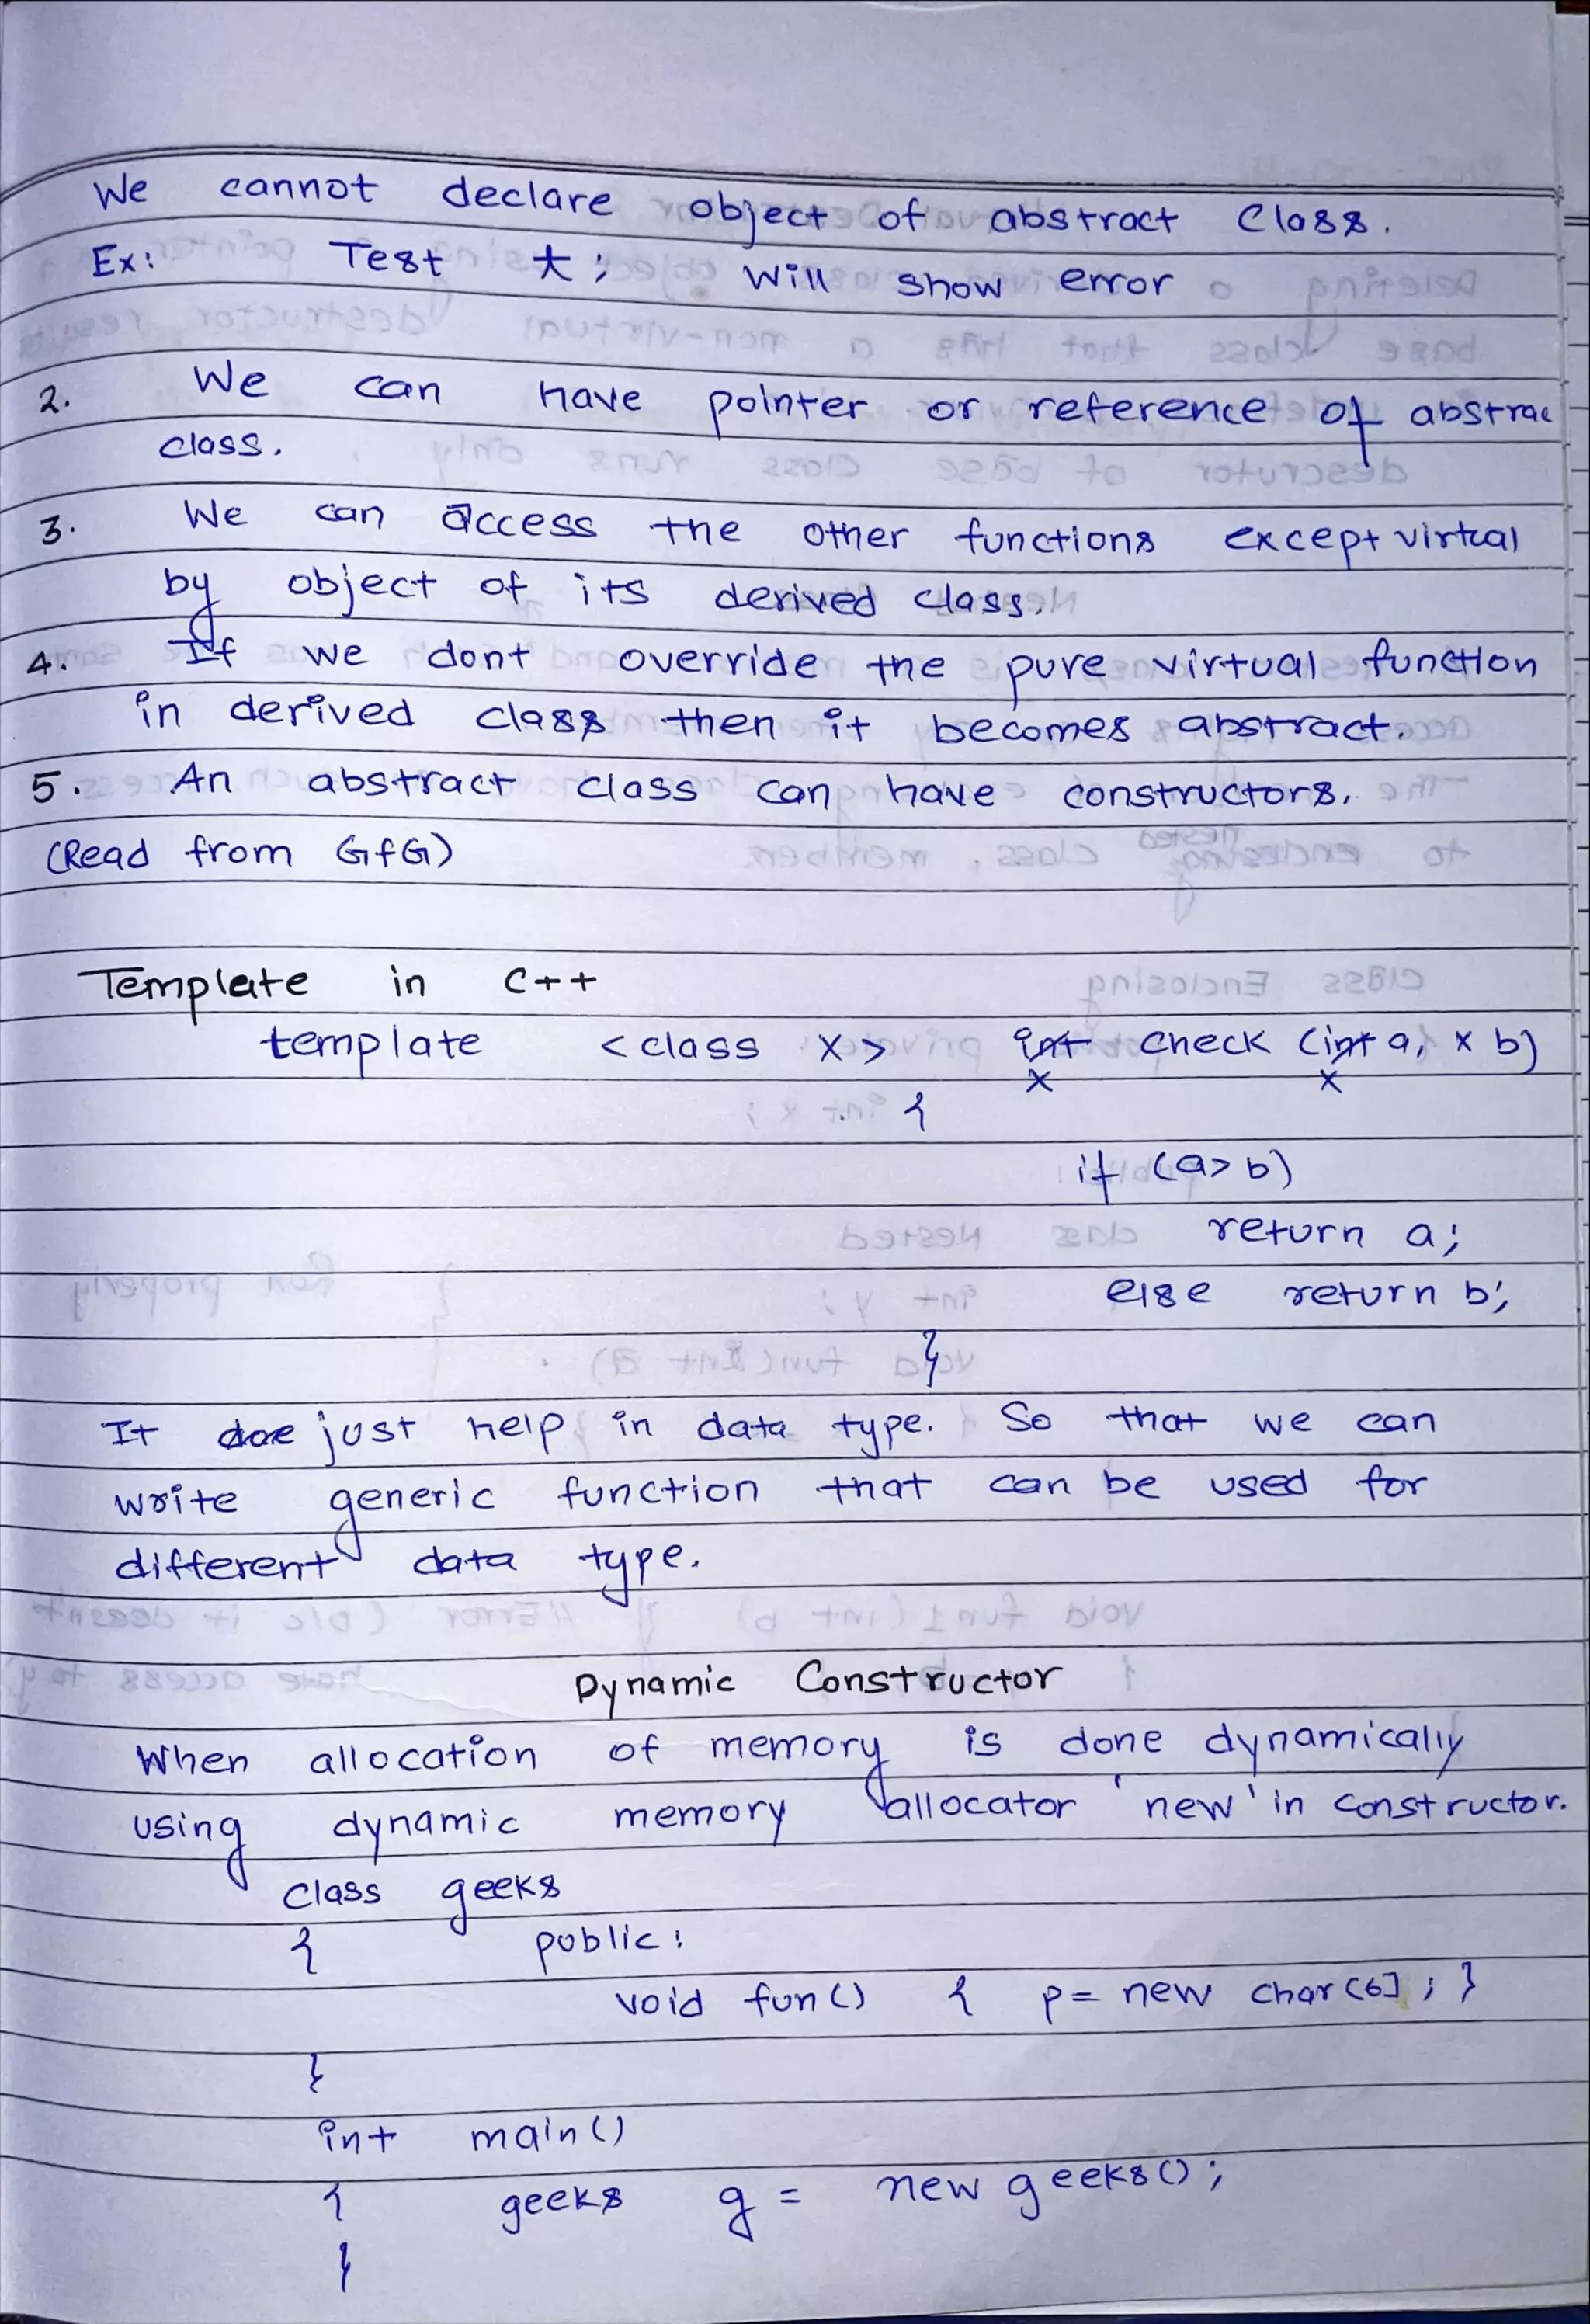 We cannot declare object of abstract Class.
Ex: Test t; will show error
2. We can have pointer or reference of abstrac
class.
3. We can access the other functions except virtual
by object of its derived class.
4. If we dont override the pure virtual function
in derived class then it becomes abstract.
5. An abstract class can have constructors.
(Read from GfG)
Template in C++
template <class X> int check (int a, x b)
X X
{
if (a>b)
return a;
else return b;
}
It just help in data type. So that we can
write generic function that can be used for
different data type.
Dynamic Constructor
When allocation of memory is done dynamically
using dynamic memory allocator 'new' in constructor.
class geeks
{ public:
void fun() { p= new char[6]; }
}
int main()
{ geeks g = new geeks();
}